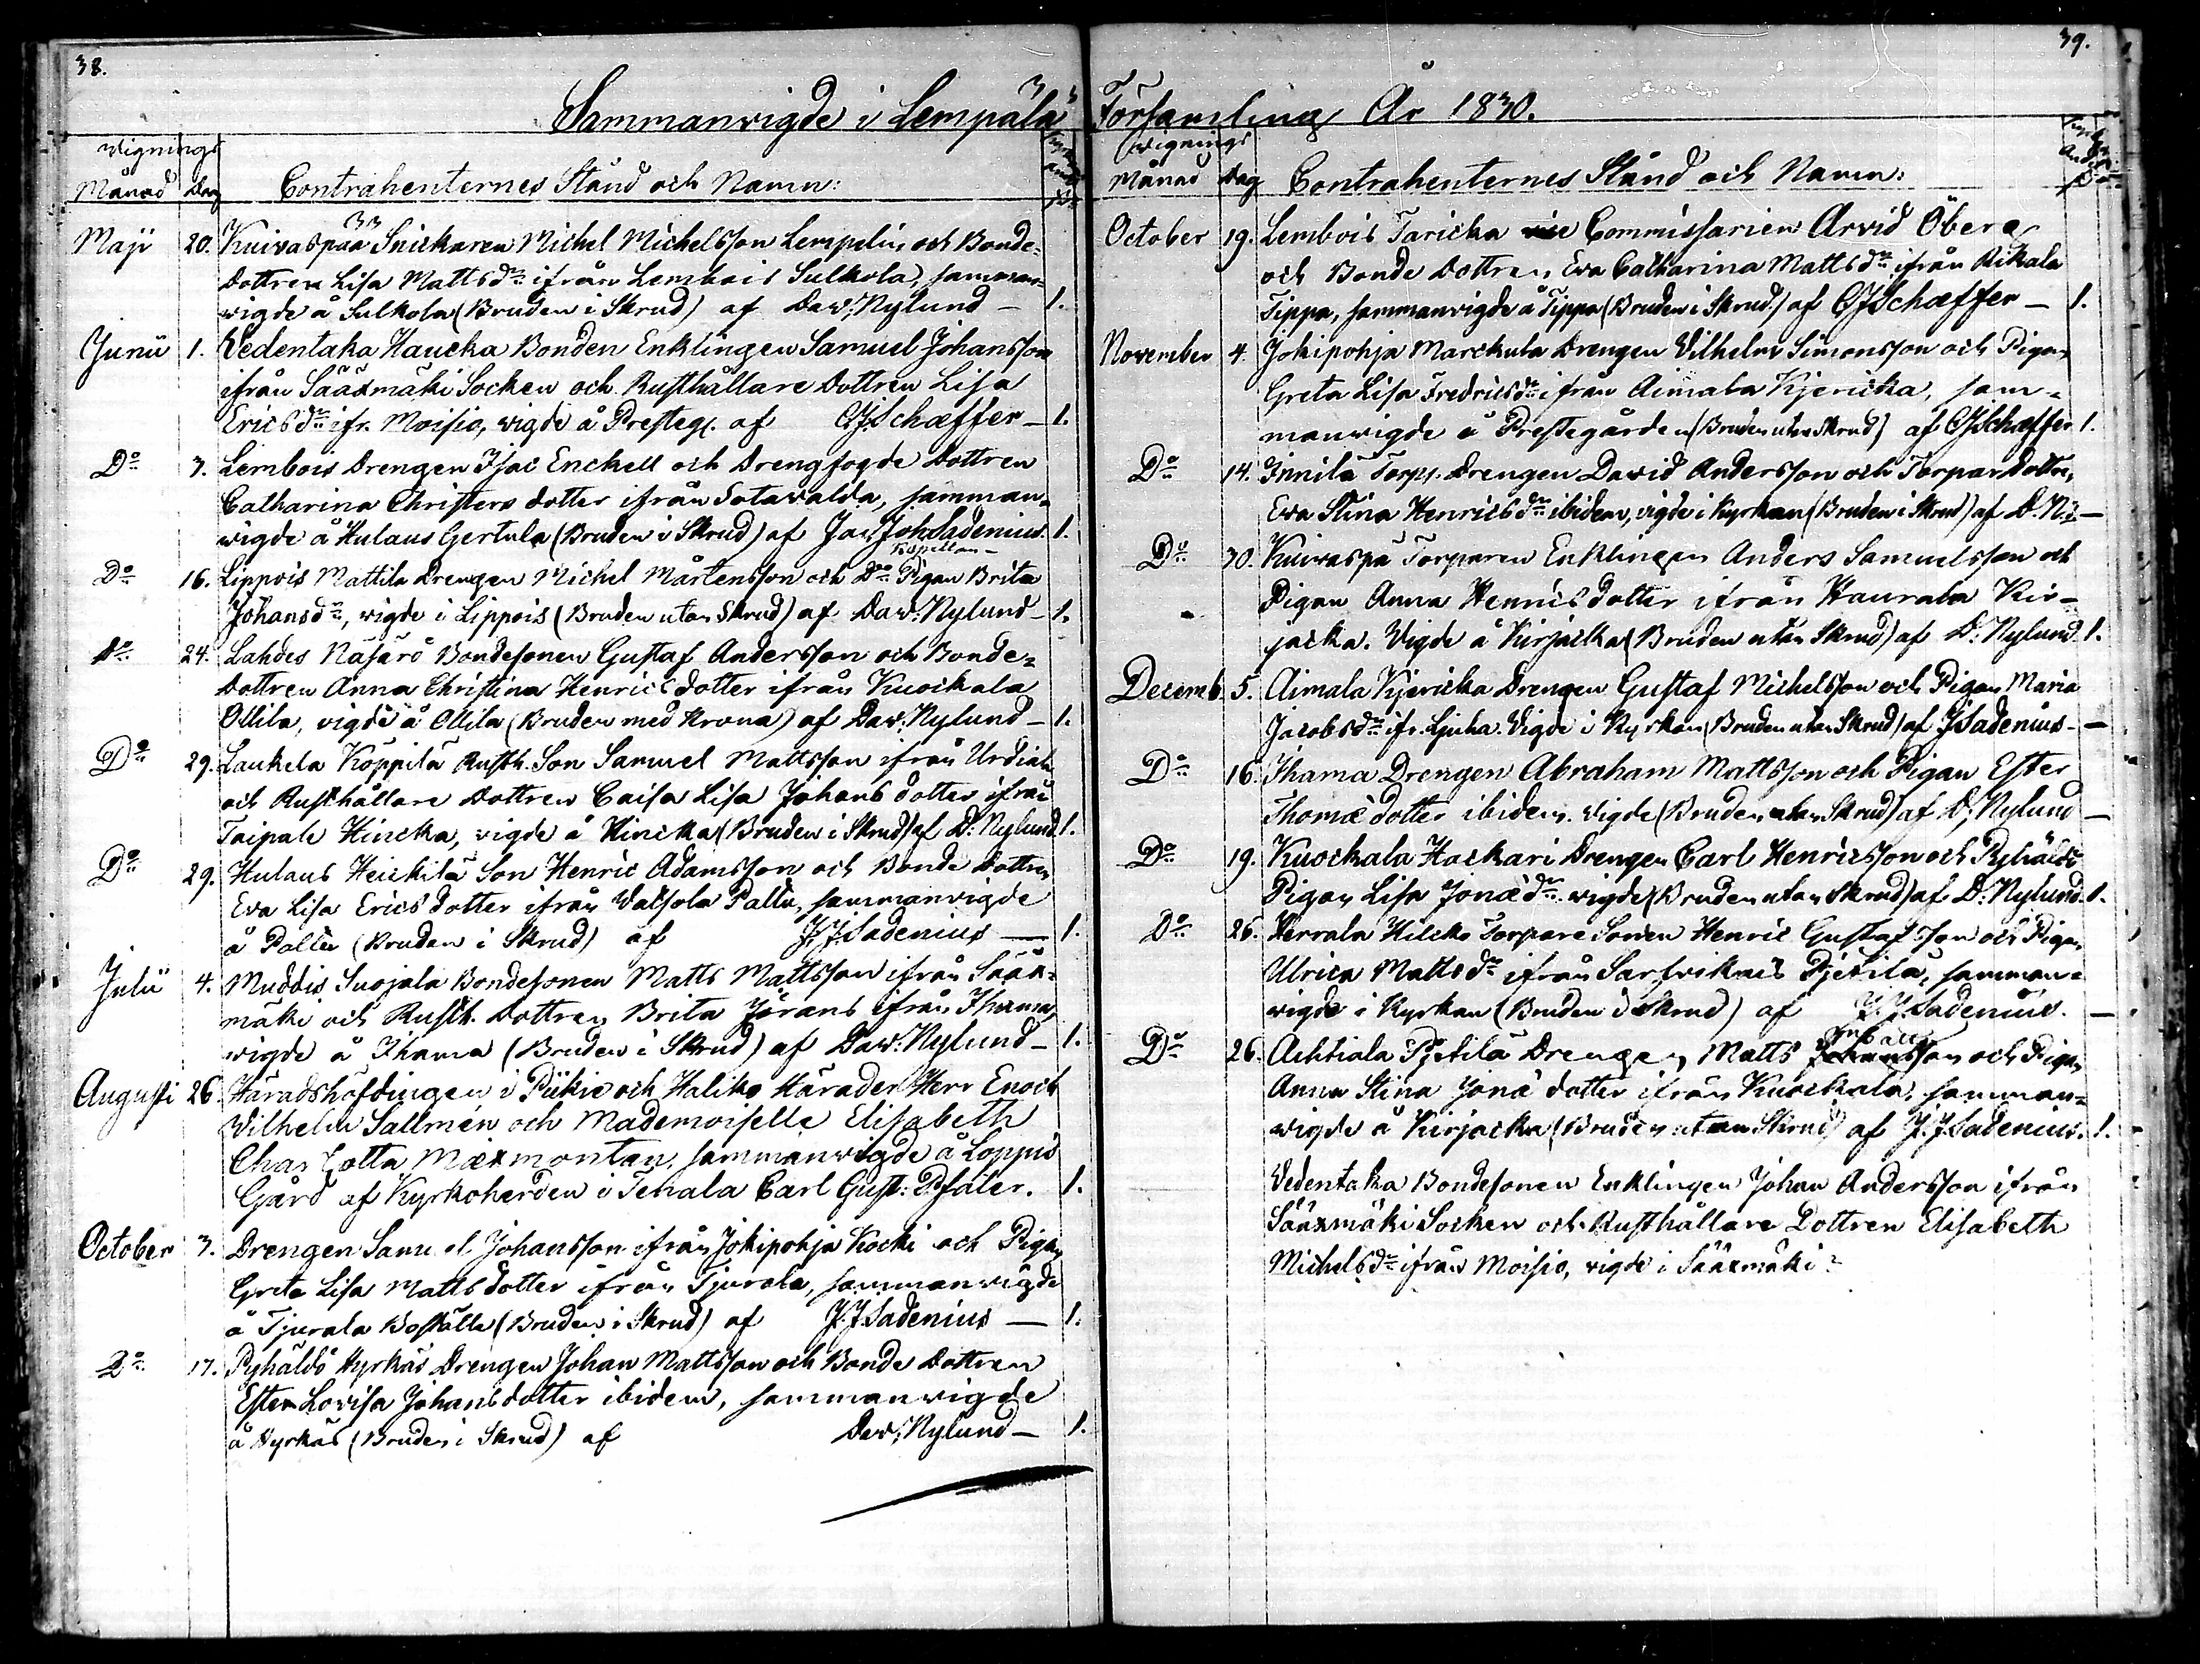 38.
Sammanvigde i Lempälä
Vignings
Månad Dag Contrahenternes Stånd och Namn:
Maji 20. Kuivaspää Snickaren Michel Michelsson Lempelin och Bonde=
dottren Lisa Mattsdr ifrån Lembois Sulkola, samman=
vigde å Sulkola (Bruden i Skrud) af Dav: Nylund — 1.
Junii 1. Vedentaka Haucka Bonden Enklingen Samuel Johansson
ifrån Sääxmäki Socken och Rusthållare Dottren Lisa
Ericsdr ifr. Moisio, vigde å Presteg. af CJSchæffer — 1.
Do 3. Lembois Drengen Isac Enckell och Drengfogde Dottren
Catharina Christersdotter ifrån Sotavalda, samman=
vigde å Hulaus Gertula (Bruden i Skrud) af Jac Joh Sadenius. 1.
Kapellan
Do 16. Lippois Mattila Drengen Michel Mårtensson och Do Pigan Brita
Johansdr, vigde i Lippois (Bruden utan Skrud) af Dav: Nylund — 1.
Do 24. Lahdes Näsärö Bondesonen Gustaf Andersson och Bonde=
dottren Anna Christina Henricsdotter ifrån Kuockala
Ollila, vigde å Ollila (Bruden med Krona) af Dav: Nylund — 1.
Do 29. Laukela Köppilä Rusth. Son Samuel Mattsson ifrån Urdiala
och Rusthållare Dottren Caisa Lisa Johansdotter ifrån
Taipale Hincka, vigde å Hincka (Bruden i Skrud) af D: Nylund 1.
Do 29. Hulaus Heickilä Son Henric Adamsson och Bonde Dottren
Eva Lisa Ericsdotter ifrån Valsola Pallu, sammanvigde
å Pallu (Bruden i Skrud) af J.J.Sadenius — 1.
Julii 4. Muddis Suojala Bondesonen Matts Mattsson ifrån Sääx=
mäki och Rusth. Dottren Brita Jörans ifrån Ihama,
vigde å Ihama (Bruden i Skrud) af Dav: Nylund — 1.
Augusti 26 Häradshöfdingen i Pikie och Haliko Härader Herr Enoch
Vilhelm Sallmén och Mademoiselle Elisabeth
Charlotta Mæxmontan, sammanvigde å Loppis
Gård af Kyrkoherden i Tenala Carl Gust: Pfaler. 1.
October 3. Drengen Samuel Johansson ifrån Jokipohja Kocki och Pigan
Greta Lisa Mattsdotter ifrån Tjurala, sammanvigde
å Tjurala Boställe (Bruden i Skrud) af J.J.Sadenius — 1.
Do 17. Pyhäldö Hyrkäs Drengen Johan Mattsson och Bonde Dottren
Ester Lovisa Johansdotter ibidem, sammanvigde
å Hyrkäs (Bruden i Skrud) af Dav: Nylund — 1.
39.
Församling År 1830.
Vignings
Månad Dag Contrahenternes Stånd och Namn:
October 19. Lembois Taricka vice Commissarien Arvid Öberg
och Bonde Dottren Eva Catharina Mattsdr ifrån Rikala
Tippa, sammanvigde å Tippa (Bruden i Skrud) af CJSchæffer — 1.
November 4. Jokipohja Marckula Drengen Vilhelm Simonsson och Pigan
Greta Lisa Fredricsdr ifrån Aimala Kjericka, sam=
manvigde å Prestegården (Bruden utan Skrud) af CJSchæffer 1.
Do 14. Innilä Torp. Drengen David Andersson och Torpardottr.
Eva Stina Henricsdr ibidem, vigde i Kyrkan (Bruden i Skrud) af D. N: —
Do 30. Kuivaspä Torparen Enklingen Anders Samuelsson och
Pigan Anna Henricsdotter ifrån Haurala Kir=
jacka. Vigde å Kirjacka (Bruden utan Skrud) af D. Nylund 1.
Decemb. 5. Aimala Kjericka Drengen Gustaf Michelsson och Pigan Maria
Jacobsdr ifr. Ljuha. Vigde i Kyrkan (Bruden utan Skrud) af JSadenius — —
Do 16. Ihama Drengen Abraham Mattsson och Pigan Ester
Thomædotter ibidem. Vigde (Bruden utan Skrud) af D; Nylund —
Do 19. Kuockala Hackari Drengen Carl Henricsson och Pyhäldö
Pigan Lisa Jonædr. vigde (Bruden utan Skrud) af D: Nylund. 1.
Do 26. Herrala Hilcko Torpare Sonen Henric Gustafsson och Pigan
Ulrica Mattsdr ifrån Sarfvikais Pjetilä, samman=
vigde i Kyrkan (Bruden i Skrud) af J.J.Sadenius. —
Do 26. Achtiala Pjetilä Drengen Matts Johansson och Pigan
Anna Stina Jonædotter ifrån Kuockala, samman=
vigde å Kirjacka (Bruden utan Skrud) af J.J.Sadenius. 1.
Vedentaka Bondesonen Enklingen Johan Andersson ifrån
Sääxmäki Socken och Rusthållare Dottren Elisabeth
Michelsdr ifrån Moisio, vigde i Sääxmäki.